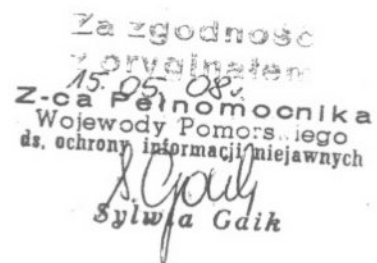 Za zgodność
z oryginałem
15.05.08r.
Z-ca Pełnomocnika
Wojewody Pomors..iego
ds. ochrony informacji niejawnych
S. Gaik
Sylwia Gaik